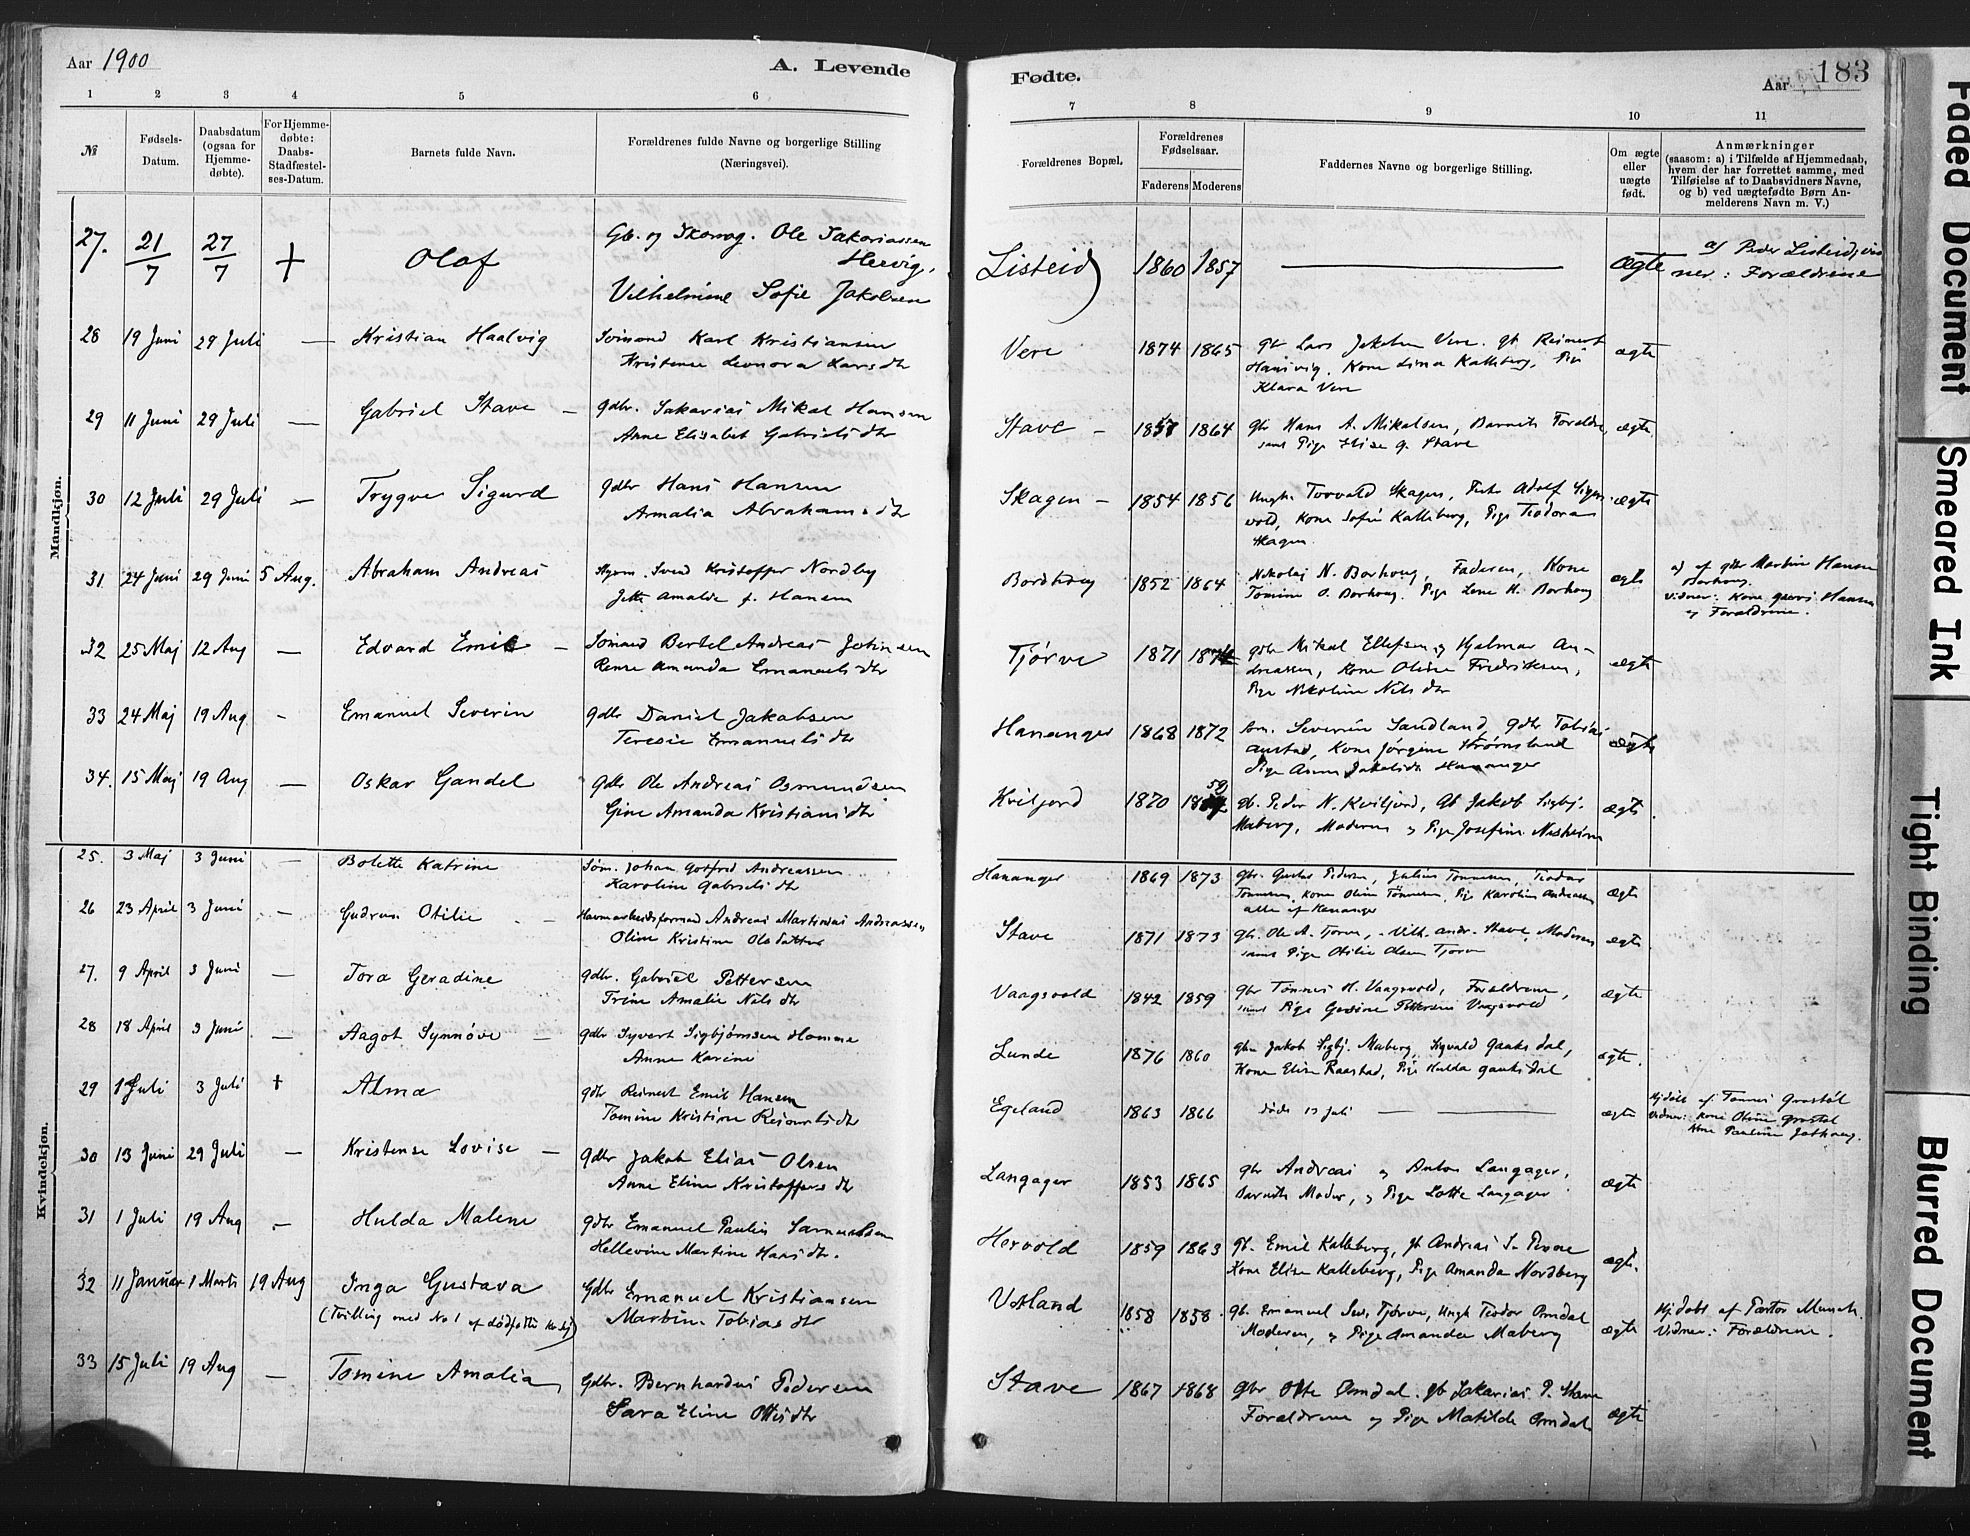 Aar 1900
A. Levende
Fødte.
Aar
183
1 2 3 4 5 6
7 8 9 10 11
№
Fødsels-
Datum.
Daabsdatum
(ogsaa for
Hjemme-
døbte).
For Hjemme-
døbte:
Daabs-
Stadfæstel-
ses-Datum.
Barnets fulde Navn.
Forældrenes fulde Navne og borgerlige Stilling
(Næringsvei).
Forældrenes Bopæl.
Forældrenes
Fødselsaar.
Faderens
Moderens
Faddernes Navne og borgerlige Stilling.
Om ægte
eller
uægte
født.
Anmærkninger
(saasom: a) i Tilfælde af Hjemmedaab,
hvem der har forrettet samme, med
Tilføielse af to Daabsvidners Navne,
og b) ved uægtefødte Børn An-
melderens Navn m. V.)
Mandkjøn.
27. 21/7 27/7 + Olaf
Gb. og Skomag. Ole Sakariassen
Hervig,
Vilhelmine Sofie Jakobsen
Listeid 1860 1857 — ægte
a) Peder Listeid, vid
ner: Forældrene
28 19 Juni 29 Juli — Kristian Haalvig
Sømand Karl Kristiansen
Kristense Leonora Larsdtr
Vere 1874 1865
gbr Lars Jakobsen Vere. gb Reinert
Hansvig. Kone Lina Kalleberg, Pige
Klara Vere
ægte
29 11 Juni 29 Juli — Gabriel Stave —
gdbr. Sakarias Mikal Hansen
Anne Elisabet Gabrielsdtr
Stave — 1857 1864
gbr Hans A. Mikalsen, Barnets Forældre,
samt Pige Elise G. Stave
ægte
30 12 Juli 29 Juli — Trygve Sigurd
gdbr Hans Hansen
Amalia Abrahamsdtr
Skagen — 1854 1856
Ungk. Torvald Skagen, Adolf Sigen-
vold, Kone Sofie Kalleberg, Pige Teodora
Skagen
ægte
31 24 Juni 29 Juni 5 Aug. Abraham Andreas
Svend Kristoffer Nordby
Jette Amalde f. Hansen
Borhoug 1852 1864
Nikolai N. Borhoug, Faderen, Kone
Tomine O. Borhoug. Pige Lene H. Borhoug
ægte
a) af gbr Martin Hansen
Borhoug.
Vidner: Kone Hansen
og Forældrene.
32 25 Maj 12 Aug — Edvard Emil —
Sømand Bertel Andreas Johnsen
Rense Amanda Emanuelsdtr
Tjørve 1871 1874
gbr Mikal Ellefsen og Hjalmar An-
dreassen, Kone Oline Fredriksen,
Pige Nikoline Nilsdtr
ægte
33 24 Maj 19 Aug - Emanuel Severin
gdbr Daniel Jakobsen
Teresie Emanuelsdtr
Hananger 1868 1872
Søm. Severin Sandland, gdbr Tobias
Austad, Kone Jørgine Strømsland
Pige Asine Jakobsdtr Hananger
ægte
34. 15 Maj 19 Aug — Oskar Gandel
gdbr Ole Andreas Osmundsen
Gine Amanda Kristiansdtr
Kviljord 1870 18 59
gb. Peder N. Kviljord, Gb Jakob Sigbj.
Maberg, Moderen og Pige Josefine Nesheim
ægte
Kvindekjøn.
25. 3 Maj 3 Juni — Bolette Katrine
Søm. Johan Gotfred Andreassen
Karoline Gabrielsdtr
Hananger 1869 1873
gbr. Gustav Pedersen, Julius Tønnesen, Teodor
Tønnesen, Kone Oline Tønnesen, Pige Karoline Andreassen
alle af Hananger
ægte
26 23 April 3 Juni — Gudrun Otilie
Havnearbeidsformand Andreas Martinius Andreassen
Oline Kristine Olsdatter
Stave 1871 1873
gbr. Ole A. Tjørve, Vilh. Andr. Stave, Moderen
samt Pige Otilie Olsen Tjørve
ægte
27. 9 April 3 Juni — Tora Geradine
gdbr. Gabriel Pettersen
Trine Amalie Nilsdtr
Vaagsvold 1842 1859
gbr Tønnes H. Vaagsvold, Forældrene,
samt Pige Gesine Pettersen Vaagsvold
ægte
28 18 April 3 Juni — Aagot Synnøve —
gdbr Syvert Sigbjørnsen Homme
Anne Karine
Lunde 1876 1860
gbr Jakob Sigbj. Maberg, Sigvald Gauksdal,
Kone Elise Raastad, Pige Hulda Gauksdal
ægte.
29 1 Juli 3 Juli + Alma
gdbr Reinert Emil Hansen
Tomine Kristine Reinertsdtr
Egeland 1863 1866 døde 13 Juli — ægte
Hjdøbt af Tønnes Grostøl
Vidner: Kone Oline Grostøl
Kone Pauline
30 13 Juni 29 Juli — Kristense Lovise —
gdbr Jakob Elias Olsen
Anne Eline Kristoffersdtr
Langager 1853 1865
gbr Andreas og Anton Langager,
Barnets Moder, og Pige Lotte Langager
ægte
31 1 Juli 19 Aug — Hulda Malene
gdbr Emanuel Paulin Samuelsen
Hellevine Martine Hansdtr.
Hervold 1859 1863
gb. Emil Kalleberg, gb Andreas S.
Kone Elise Kalleberg, Pige Amanda Nordberg
ægte.
32 11 Januar 1 Marts 19 Aug Inga Gustava
(Tvilling med No 1 af dødfødte )
Gdbr Emanuel Kristiansen
Martine Tobiasdtr
Vatland 1858 1858.
gb. Emanuel Sev. Tjørve, Ungk Teodor Omdal
Moderen, og Pige Amanda Maberg
ægte
Hjdøbt af Pastor Munch.
Vidner: Forældrene.
33 15 Juli 19 Aug — Tomine Amalia
Gdbr. Bernhardus Pedersen
Sara Eline Ottesdtr
Stave 1867 1868
gbr Otte Omdal. gb Sakarias P. Stave
Forældrene og Pige Matilde Omdal
ægte
Faded Document
Smeared Ink
Tight Binding
Blurred Document